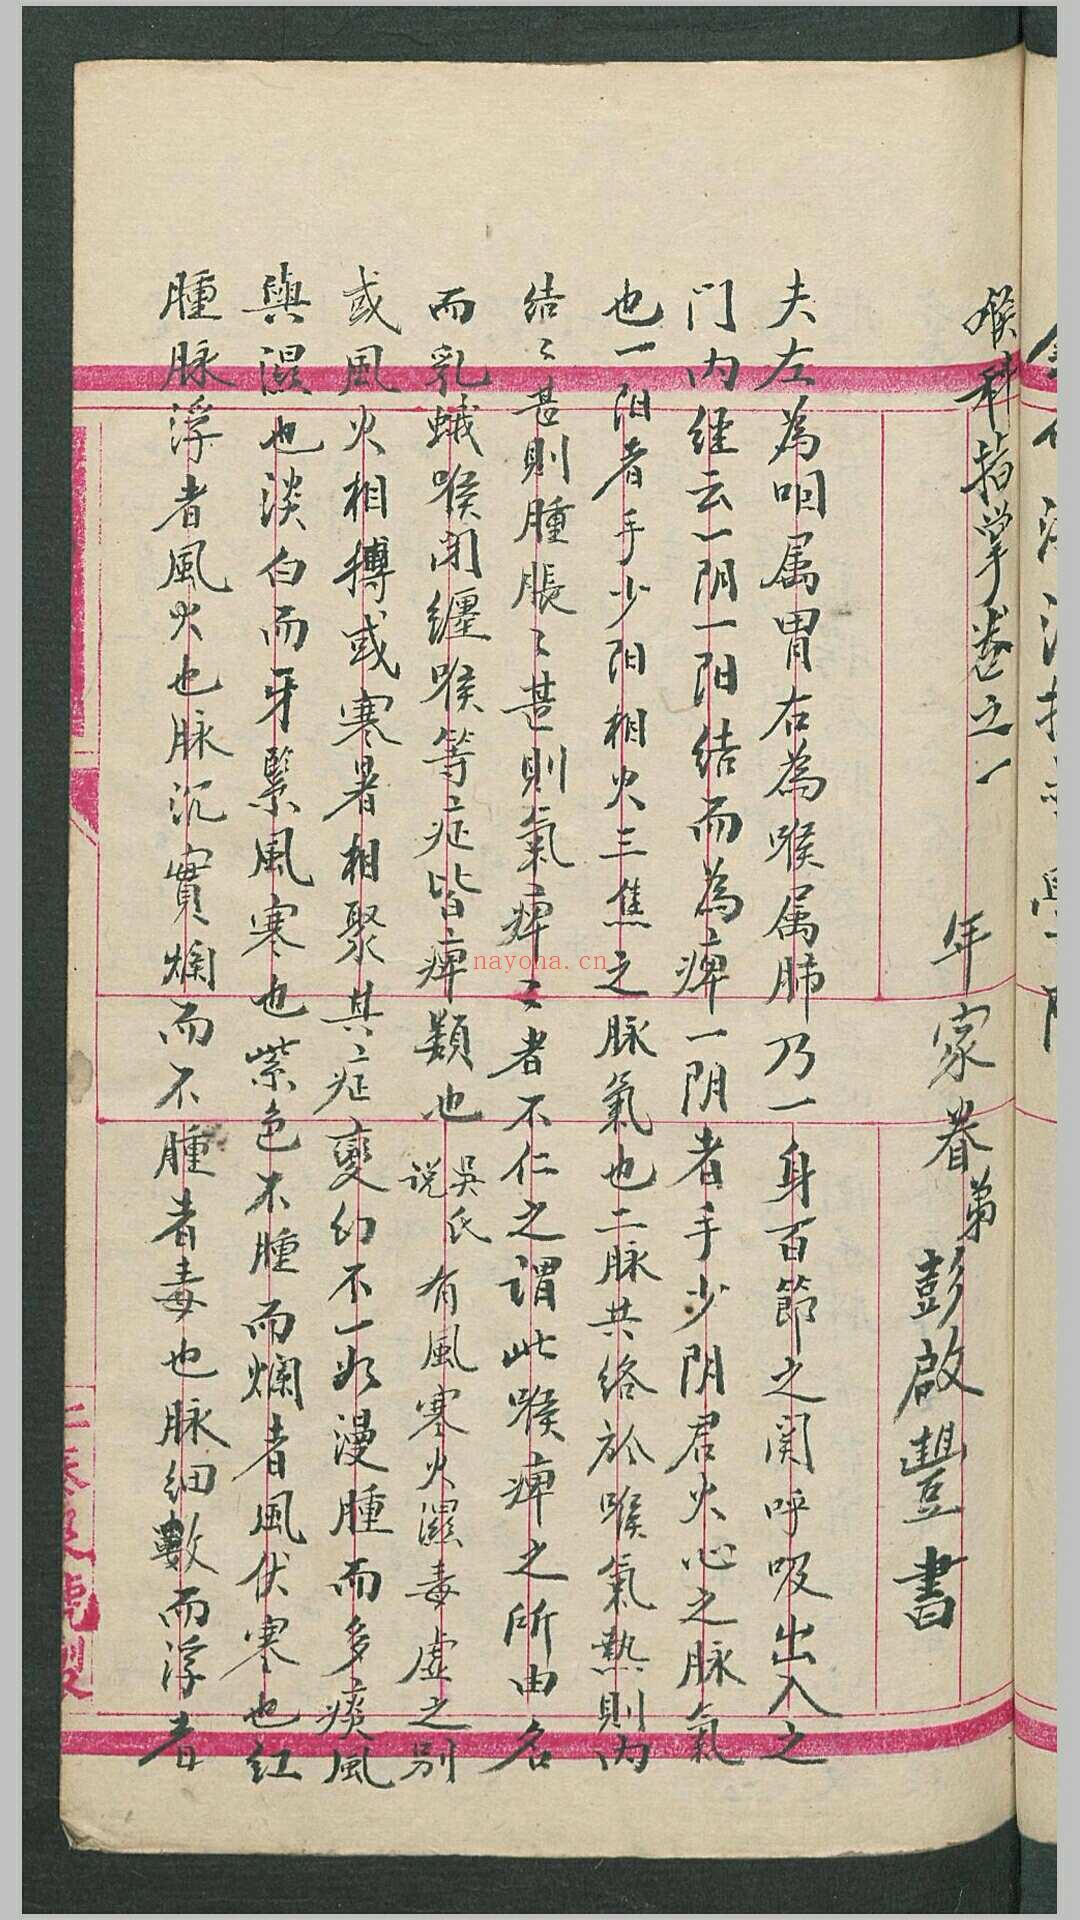 喉科指掌卷之一
年家眷弟彭啟豐書
夫左為咽属胃右為喉属肺乃一身百節之関呼吸出入之
门内经云一阴一阳结而為痺一阴者手少阴君火心之脉氣
也一阳者手少阳相火三焦之脉氣也二脉共络於喉氣熱则内
结〻甚則腫脹〻甚則氣痺〻者不仁之謂此喉痺之所由名
而乳蛾喉闭纏喉等症皆痺類也 吳氏説 有風寒火濕毒虚之别
或風火相搏或寒暑相聚其症變幻不一如漫腫而多痰風
與濕也淡白而牙緊風寒也紫色不腫而爛者風伏寒也红
腫脉浮者風火也脉沉實爛而不腫者毒也脉细數而浮者
nayona.cn